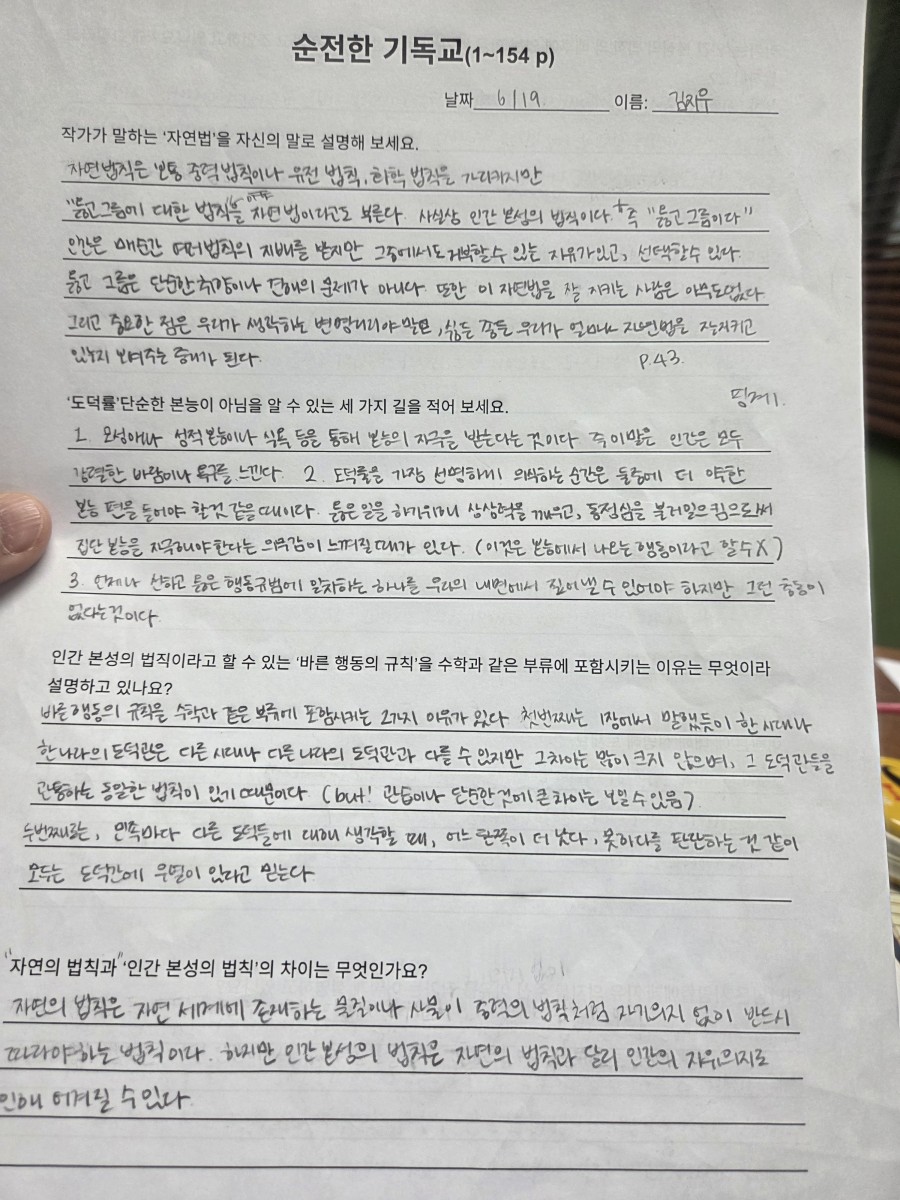 순전한 기독교(1~154 p)
날짜 6/19 이름: 김지우
작가가 말하는 '자연법'을 자신의 말로 설명해 보세요.
자연법칙은 보통 중력법칙이나 유전 법칙, 화학 법칙을 가리키지만
"옳고그름에 대한 법칙을 자연법이라고도 부른다. 사실상 인간 본성의 법칙이다. 즉 "옳고그름이다"
인간은 매순간 여러법칙의 지배를 받지만 그중에서도 거부할수 있는 자유가있고, 선택할수 있다.
옳고 그름은 단순한취향이나 견해의 문제가 아니다. 또한 이 자연법을 잘 지키는 사람은 아무도없다
그리고 중요한 점은 우리가 생각하는 변명 , 싫든 좋든 우리가 얼마나 자연법을
있는지 보여주는 증거가 된다. P.43.
핑계1.
'도덕률'단순한 본능이 아님을 알 수 있는 세 가지 길을 적어 보세요.
1. 모성애나 성적본능이나 식욕 등을 통해 본능의 자극을 받는다는 것이다 즉 이말은 인간은 모두
강렬한 바람이나 욕구를 느낀다. 2. 도덕률을 가장 선명하게 의식하는 순간은 둘중에 더 약한
본능 편을 들어야 할것 같을때이다. 옳은일을 하기위해 상상력을 깨우고, 동정심을 불러일으킴으로써
집단 본능을 자극해야한다는 의무감이 느껴질 때가 있다. (이것은 본능에서 나오는 행동이라고 할수X)
3. 언제나 선하고 옳은 행동규범에 일치하는 하나를 우리의 내면에서 짚어낼 수 있어야 하지만 그런 충동이
없다는것이다.
인간 본성의 법직이라고 할 수 있는 '바른 행동의 규칙'을 수학과 같은 부류에 포함시키는 이유는 무엇이라
설명하고 있나요?
바른행동의 규칙을 수학과 같은 부류에 포함시키는 2가지 이유가 있다 첫번째는 1장에서 말했듯이 한 시대나
한나라의 도덕관은 다른 시대나 다른 나라의 도덕관과 다를 수 있지만 그차이는 많이 크지 않으며, 그 도덕관들을
관통하는 동일한 법칙이 있기 때문이다 (but! 관습이나 단순한것에 큰차이는 보일 수있음)
두번째로는, 민족마다 다른 도덕들에 대해 생각할 때, 어느 한쪽이 더 낫다, 못하다를 판단하는 것 같이
모두는 도덕간에 우열이 있다고 믿는다
"자연의 법칙과" '인간 본성의 법칙'의 차이는 무엇인가요?
자연의 법칙은 자연 세계에 존재하는 물질이나 사물이 중력의 법칙처럼 자기의지 없이 반드시
따라야하는 법칙이다. 하지만 인간본성의 법칙은 자연의 법칙과 달리 인간의 자유의지로
인해 어겨질 수 있다.